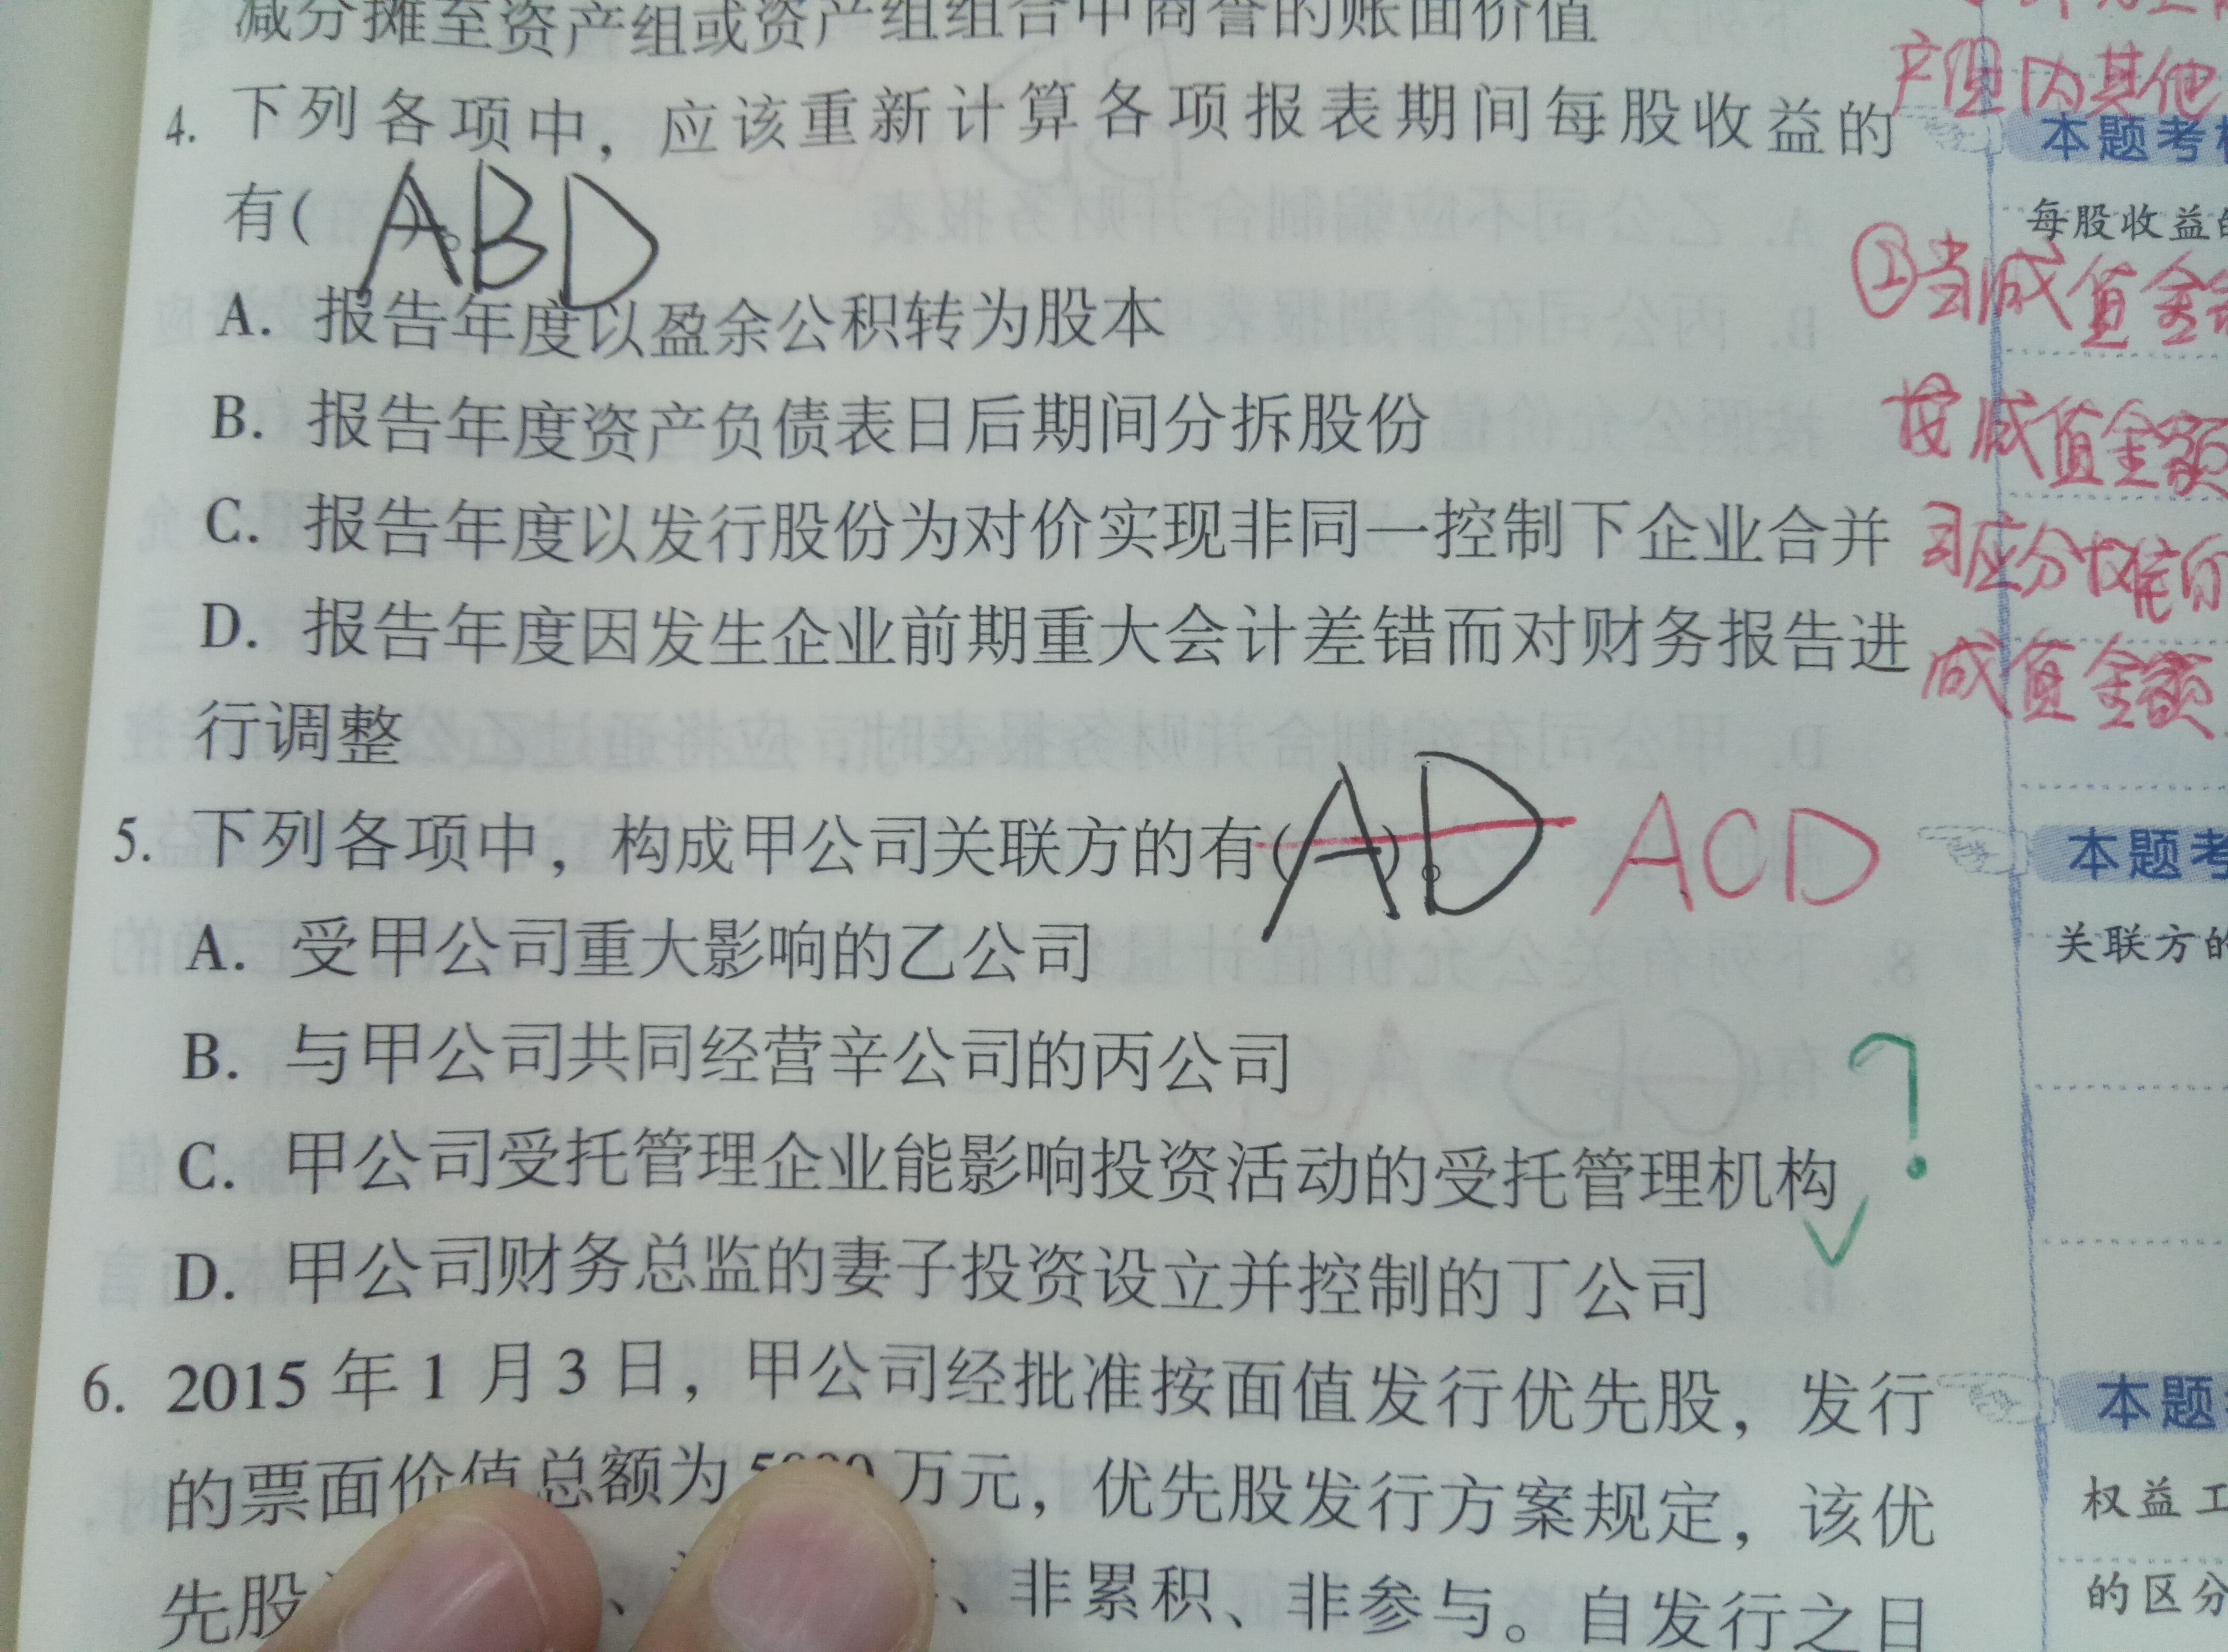 减分摊至资产组或资产组组合中商誉的账面价值
产组内其他
4. 下列各项中，应该重新计算各项报表期间每股收益的
本题考
有( )。
ABD
每股收益的
A. 报告年度以盈余公积转为股本
②当减值金额
B. 报告年度资产负债表日后期间分拆股份
按减值金额
C. 报告年度以发行股份为对价实现非同一控制下企业合并
应分摊的
D. 报告年度因发生企业前期重大会计差错而对财务报告进
减值金额
行调整
5. 下列各项中，构成甲公司关联方的有( )。
AD ACD
本题考
A. 受甲公司重大影响的乙公司
关联方的
B. 与甲公司共同经营辛公司的丙公司
?
C. 甲公司受托管理企业能影响投资活动的受托管理机构
D. 甲公司财务总监的妻子投资设立并控制的丁公司
6. 2015 年 1 月 3 日，甲公司经批准按面值发行优先股，发行
本题
的票面价值总额为 5000 万元，优先股发行方案规定，该优
权益工
先股
、非累积、非参与。自发行之日
的区分